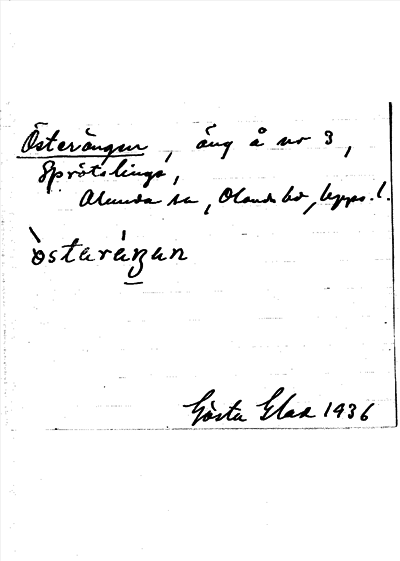 Österängen, äng å no 3,
Sprötslinga,
Alunda sn, Olands hd, Upps. l.
òstaráŋan
Gösta Elas 1936